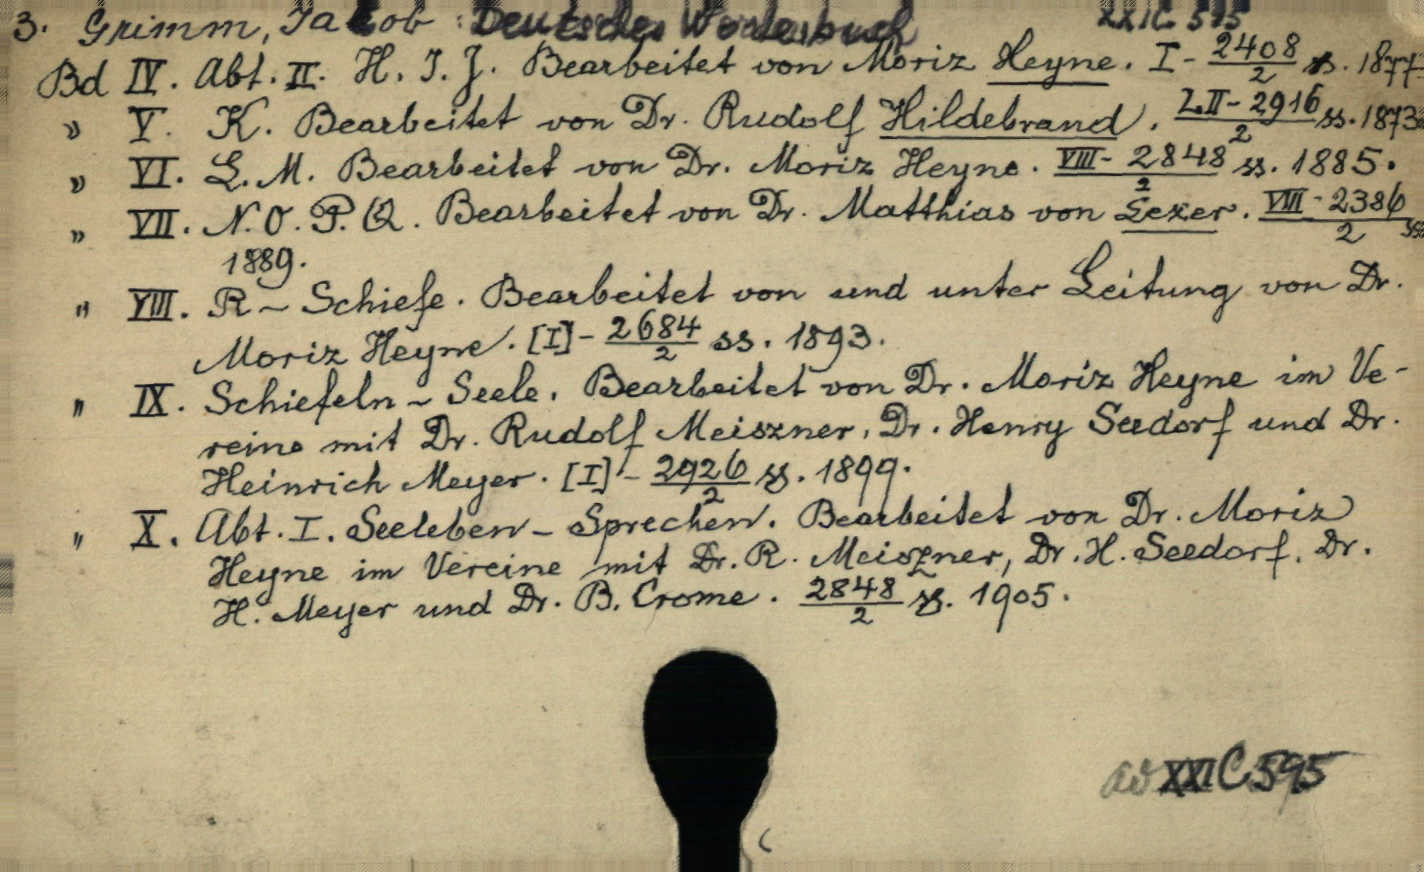 3. Grimm, Jakob: Deutsches Wörterbuch XXIC 595
Bd IV. Abt. II. H. I. J. Bearbeitet von Moriz Heyne. I - 2408/2 ss. 1877
" V. K. Bearbeitet von Dr. Rudolf Hildebrand. LII - 2916/2 ss. 1873
" VI. L. M. Bearbeitet von Dr. Moriz Heyne. VIII - 2848/2 ss. 1885.
" VII. N. O. P. Q. Bearbeitet von Dr. Matthias von Lexer. VIII - 2386/2 ss.
1889.
" VIII. R - Schiefe. Bearbeitet von und unter Leitung von Dr.
Moriz Heyne. [I] - 2684/2 ss. 1893.
" IX. Schiefeln - Seele. Bearbeitet von Dr. Moriz Heyne im Ve-
reine mit Dr. Rudolf Meiszner, Dr. Henry Seedorf und Dr.
Heinrich Meyer. [I] - 2926/2 ss. 1899.
" X. Abt. I. Seeleben - Sprechen. Bearbeitet von Dr. Moriz
Heyne im Vereine mit Dr. R. Meiszner, Dr. H. Seedorf. Dr.
H. Meyer und Dr. B. Crome. 2848/2 ss. 1905.
ad XXI C 595